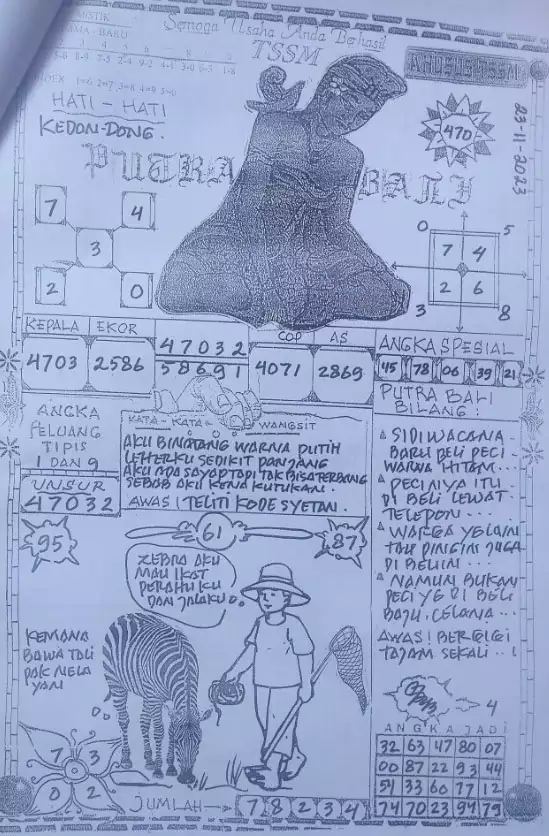 Semoga Usaha Anda Berhasil
TSSM
KHUSUS TSSM
INDEX 1=6 2=7 3=8 4=9 5=0
HATI - HATI
KEDON-DONG.
470
23-11-2023
PUTRA BALI
7 4
3
2 0
0 5
7 4
2 6
3 8
KEPALA EKOR
4703 2586
47032
58691
COP AS
4071 2869
ANGKA SPESIAL
45 78 06 39 21
ANGKA
PELUANG
TIPIS
1 DAN 9
UNSUR
47032
KATA - KATA - WANGSIT
AKU BINATANG WARNA PUTIH
LEHERKU SEDIKIT PANJANG
AKU ADA SAYAP TAPI TAK BISA TERBANG
SEBAB AKU KENA KUTUKAN.
AWAS! TELITI KODE SYETAN.
PUTRA BALI
BILANG:
SIDI WACANA
BARU BELI PECI
WARNA HITAM...
PECINYA ITU
DI BELI LEWAT
TELEPON...
WARGA YG LAIN
TAK PINGIN JUGA
DI BELIIN...
NAMUN BUKAN
PECI YG DI BELI
BAJU. CELANA...
AWAS! BERGIGI
TAJAM SEKALI..!
95
61
87
ZEBRA AKU
MAU IKAT
PERAHU KU
DAN JALAKU.
KEMANA
BAWA TALI
PAK NELA
YAN
7 3
0 2
JUMLAH → 7 8 2 3 4
4
ANGKA JADI
32 63 47 80 07
00 87 22 93 44
51 33 60 77 12
74 70 23 94 79